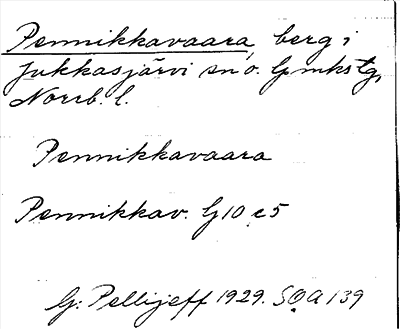 Pennikkavaara, berg i
Jukkasjärvi sn o. Gmkstg,
Norrb. l.
Pennikkavaara
Pennikkav. G10 e5
G. Pellijeff 1929. SOA 139